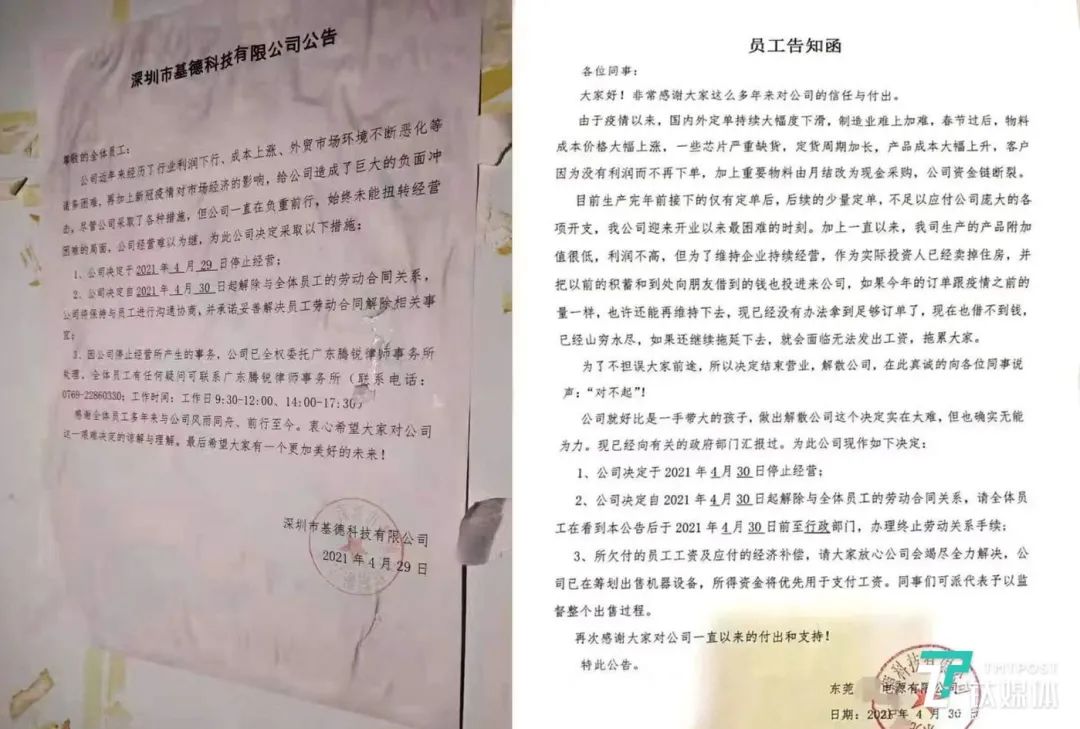 深圳市基德科技有限公司公告
尊敬的全体员工:
公司近年来经历了行业利润下行、成本上涨、外贸市场环境不断恶化等
诸多困难,再加上新冠疫情对市场经济的影响,给公司造成了巨大的负面冲
击。尽管公司采取了各种措施,但公司一直在负重前行,始终未能扭转经营
困难的局面,公司经营难以为继,为此公司决定采取以下措施:
1、公司决定于 2021 年 4 月 29 日停止经营;
2、公司决定自 2021 年 4 月 30 日起解除与全体员工的劳动合同关系,
公司将保持与员工进行沟通协商,并承诺妥善解决员工劳动合同解除相关事
宜;
3、因公司停止经营所产生的事务,公司已全权委托广东腾锐律师事务所
处理。全体员工有任何疑问可联系广东腾锐律师事务所(联系电话:
0769-22860330;工作时间:工作日 9:30-12:00、14:00-17:30)
感谢全体员工多年来与公司风雨同舟、前行至今。衷心希望大家对公司
这一艰难决定的谅解与理解。最后希望大家有一个更加美好的未来!
深圳市基德科技有限公司
2021 年 4 月 29 日
员工告知函
各位同事:
大家好!非常感谢大家这么多年来对公司的信任与付出。
由于疫情以来,国内外定单持续大幅度下滑,制造业难上加难,春节过后,物料
成本价格大幅上涨,一些芯片严重缺货,定货周期加长,产品成本大幅上升,客户
因为没有利润而不再下单,加上重要物料由月结改为现金采购,公司资金链断裂。
目前生产完年前接下的仅有定单后,后续的少量定单,不足以应付公司庞大的各
项开支,我公司迎来开业以来最困难的时刻。加上一直以来,我司生产的产品附加
值很低,利润不高,但为了维持企业持续经营,作为实际投资人已经卖掉住房,并
把以前的积蓄和到处向朋友借到的钱也投进来公司,如果今年的订单跟疫情之前的
量一样,也许还能再维持下去,现已经没有办法拿到足够订单了,现在也借不到钱,
已经山穷水尽,如果还继续拖延下去,就会面临无法发出工资,拖累大家。
为了不担误大家前途,所以决定结束营业,解散公司,在此真诚的向各位同事说
声:“对不起”!
公司就好比是一手带大的孩子,做出解散公司这个决定实在太难,但也确实无能
为力。现已经向有关的政府部门汇报过。为此公司现作如下决定:
1、公司决定于 2021 年 4 月 30 日停止经营;
2、公司决定自 2021 年 4 月 30 日起解除与全体员工的劳动合同关系,请全体员
工在看到本公告后于 2021 年 4 月 30 日前至行政部门,办理终止劳动关系手续;
3、所欠付的员工工资及应付的经济补偿,请大家放心公司会竭尽全力解决,公
司已在筹划出售机器设备,所得资金将优先用于支付工资。同事们可派代表予以监
督整个出售过程。
再次感谢大家对公司一直以来的付出和支持!
特此公告。
东莞 电源有限公司
日期:2021 年 4 月 30 日
TMTPOST
钛媒体